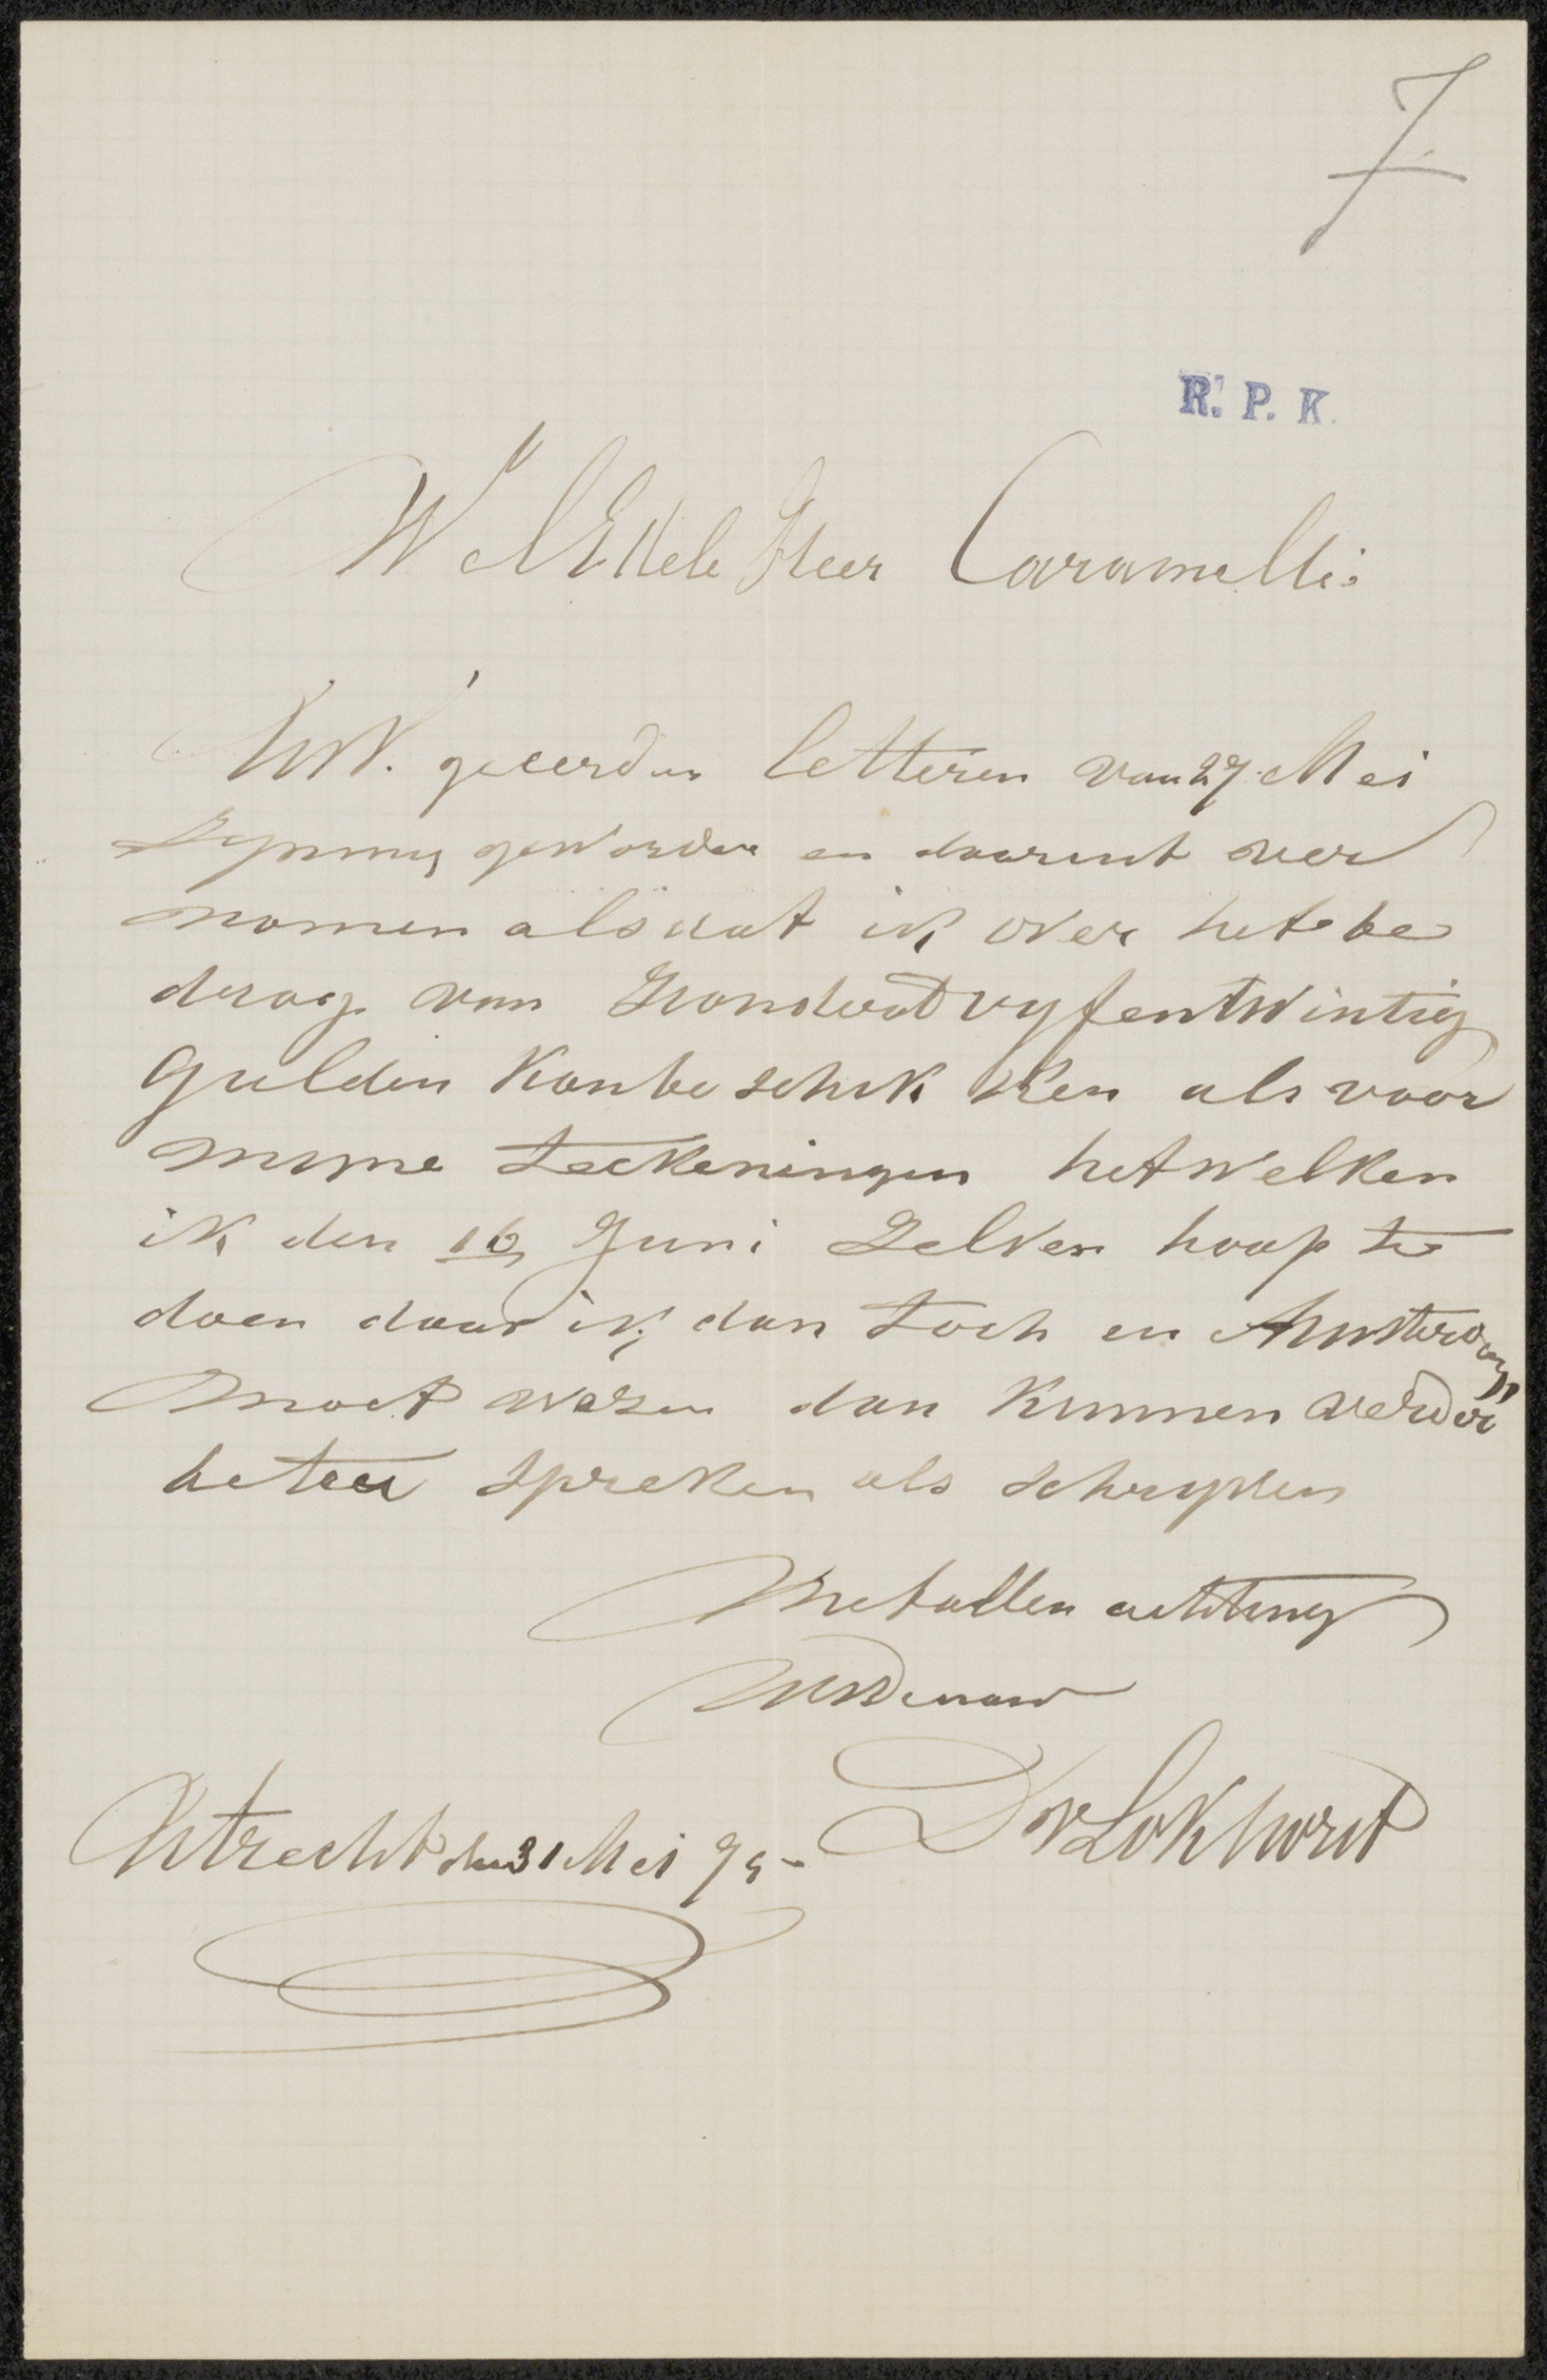 7
R. P. K.
WelEdele Heer Caramelli.
UW. geeerden letteren van 27 Mei
zyn my geworden en daaruit ver
nomen als dat ik over het be
drag van Hondertvyfentwintig
gulden kan beschik ken als voor
myne teekeningen hetwelken
ik den 16 Juni zelven hoop te
doen daar ik dan toch en Amsterdam
moet wezen dan kunnen verder
beter spreken als schryven
Met allen achting
UWDienaar
D v Lokhorst
Utrecht den 31 Mei 95-